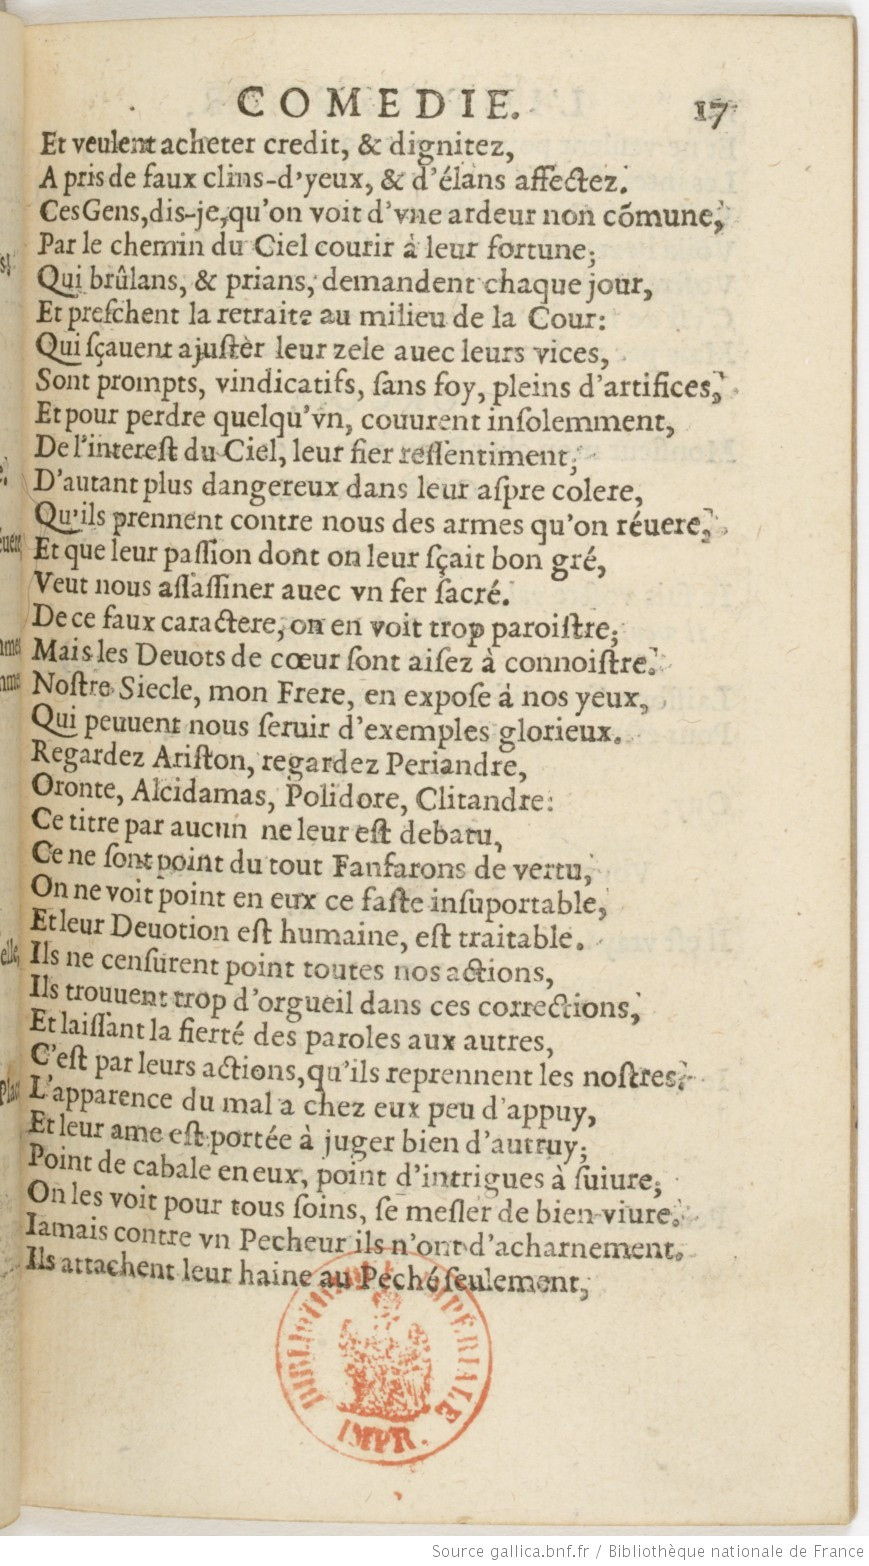 COMEDIE. 17
Et veulent acheter credit, & dignitez,
A pris de faux clins-d'yeux, & d'élans affectez.
Ces Gens, dis-je, qu'on voit d'vne ardeur non cõmune,
Par le chemin du Ciel courir à leur fortune;
Qui brûlans, & prians, demandent chaque jour,
Et preſchent la retraite au milieu de la Cour:
Qui ſçauent ajuſtèr leur zele auec leurs vices,
Sont prompts, vindicatifs, ſans foy, pleins d'artifices,
Et pour perdre quelqu'vn, couurent inſolemment,
De l'intereſt du Ciel, leur fier reſſentiment;
D'autant plus dangereux dans leur aſpre colere,
Qu'ils prennent contre nous des armes qu'on réuere,
Et que leur paſſion dont on leur ſçait bon gré,
Veut nous aſſaſſiner auec vn fer ſacré.
De ce faux caractere, on en voit trop paroiſtre;
Mais les Deuots de cœur ſont aiſez à connoiſtre.
Noſtre Siecle, mon Frere, en expoſe à nos yeux,
Qui peuuent nous ſeruir d'exemples glorieux.
Regardez Ariſton, regardez Periandre,
Oronte, Alcidamas, Polidore, Clitandre:
Ce titre par aucun ne leur eſt debatu,
Ce ne ſont point du tout Fanfarons de vertu,
On ne voit point en eux ce faſte inſuportable,
Et leur Deuotion eſt humaine, eſt traitable.
Ils ne cenſurent point toutes nos actions,
Ils trouuent trop d'orgueil dans ces corrections,
Et laiſſant la fierté des paroles aux autres,
C'eſt par leurs actions, qu'ils reprennent les noſtres.
L'apparence du mal a chez eux peu d'appuy,
Et leur ame eſt portée à juger bien d'autruy;
Point de cabale en eux, point d'intrigues à ſuiure;
On les voit pour tous ſoins, ſe meſler de bien viure.
Iamais contre vn Pecheur ils n'ont d'acharnement.
Ils attachent leur haine au Peché ſeulement,
BIBLIOTHÈQUE IMPÉRIALE
IMPR.
Source gallica.bnf.fr / Bibliothèque nationale de France